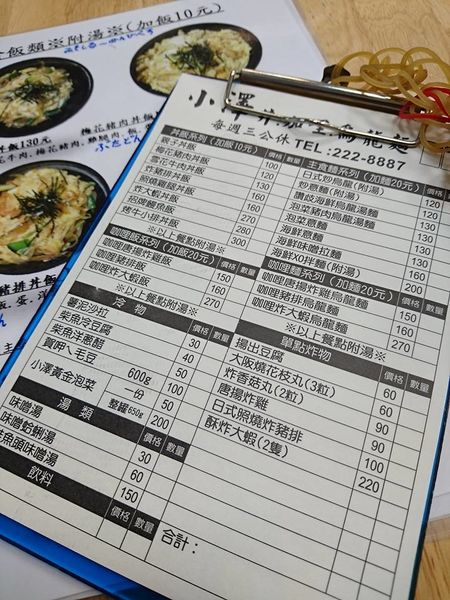 飯類※附湯※(加飯10元)
飯130元
梅花豬肉丼飯
豬排丼飯
小澤
烏龍麵
每週三公休 TEL:222-8887
丼飯系列(加飯10元) 價格 數量
親子丼飯 100
梅花豬肉丼飯 120
雪花牛肉丼飯 130
炸豬排丼飯 150
照燒雞腿丼飯 160
炸大蝦丼飯 200
招牌鰻魚飯 280
烤牛小排丼飯 300
※以上餐點附湯※
咖哩飯系列(加飯20元) 價格 數量
咖哩唐揚炸雞飯 150
咖哩豬排飯 160
咖哩炸大蝦飯 270
※以上餐點附湯※
冷物 價格 數量
薯泥沙拉 30
柴魚冷豆腐 35
柴魚洋蔥 40
賀呷ㄟ毛豆 50
600g 100
小澤黃金泡菜 一份 50
整罐650g 200
湯類 價格 數量
味噌湯 30
味噌蛤蜊湯 60
鮭魚頭味噌湯 150
飲料 價格 數量
主食麵系列(加麵20元) 價格
日式炒烏龍(附湯) 120
炒意麵(附湯) 120
讚岐海鮮烏龍湯麵
泡菜豬肉烏龍湯麵
泡菜意麵
海鮮意麵
海鮮味噌拉麵
海鮮XO拌麵(附湯)
咖哩麵系列(加麵20元) 價格 數量
咖哩唐揚炸雞烏龍麵 150
咖哩豬排烏龍麵 160
咖哩炸大蝦烏龍麵 270
※以上餐點附湯※
單點炸物 價格 數量
揚出豆腐 60
大阪燒花枝丸(3粒) 60
炸香菇丸(2粒) 90
唐揚炸雞 90
日式照燒炸豬排 100
酥炸大蝦(2隻) 220
合計：